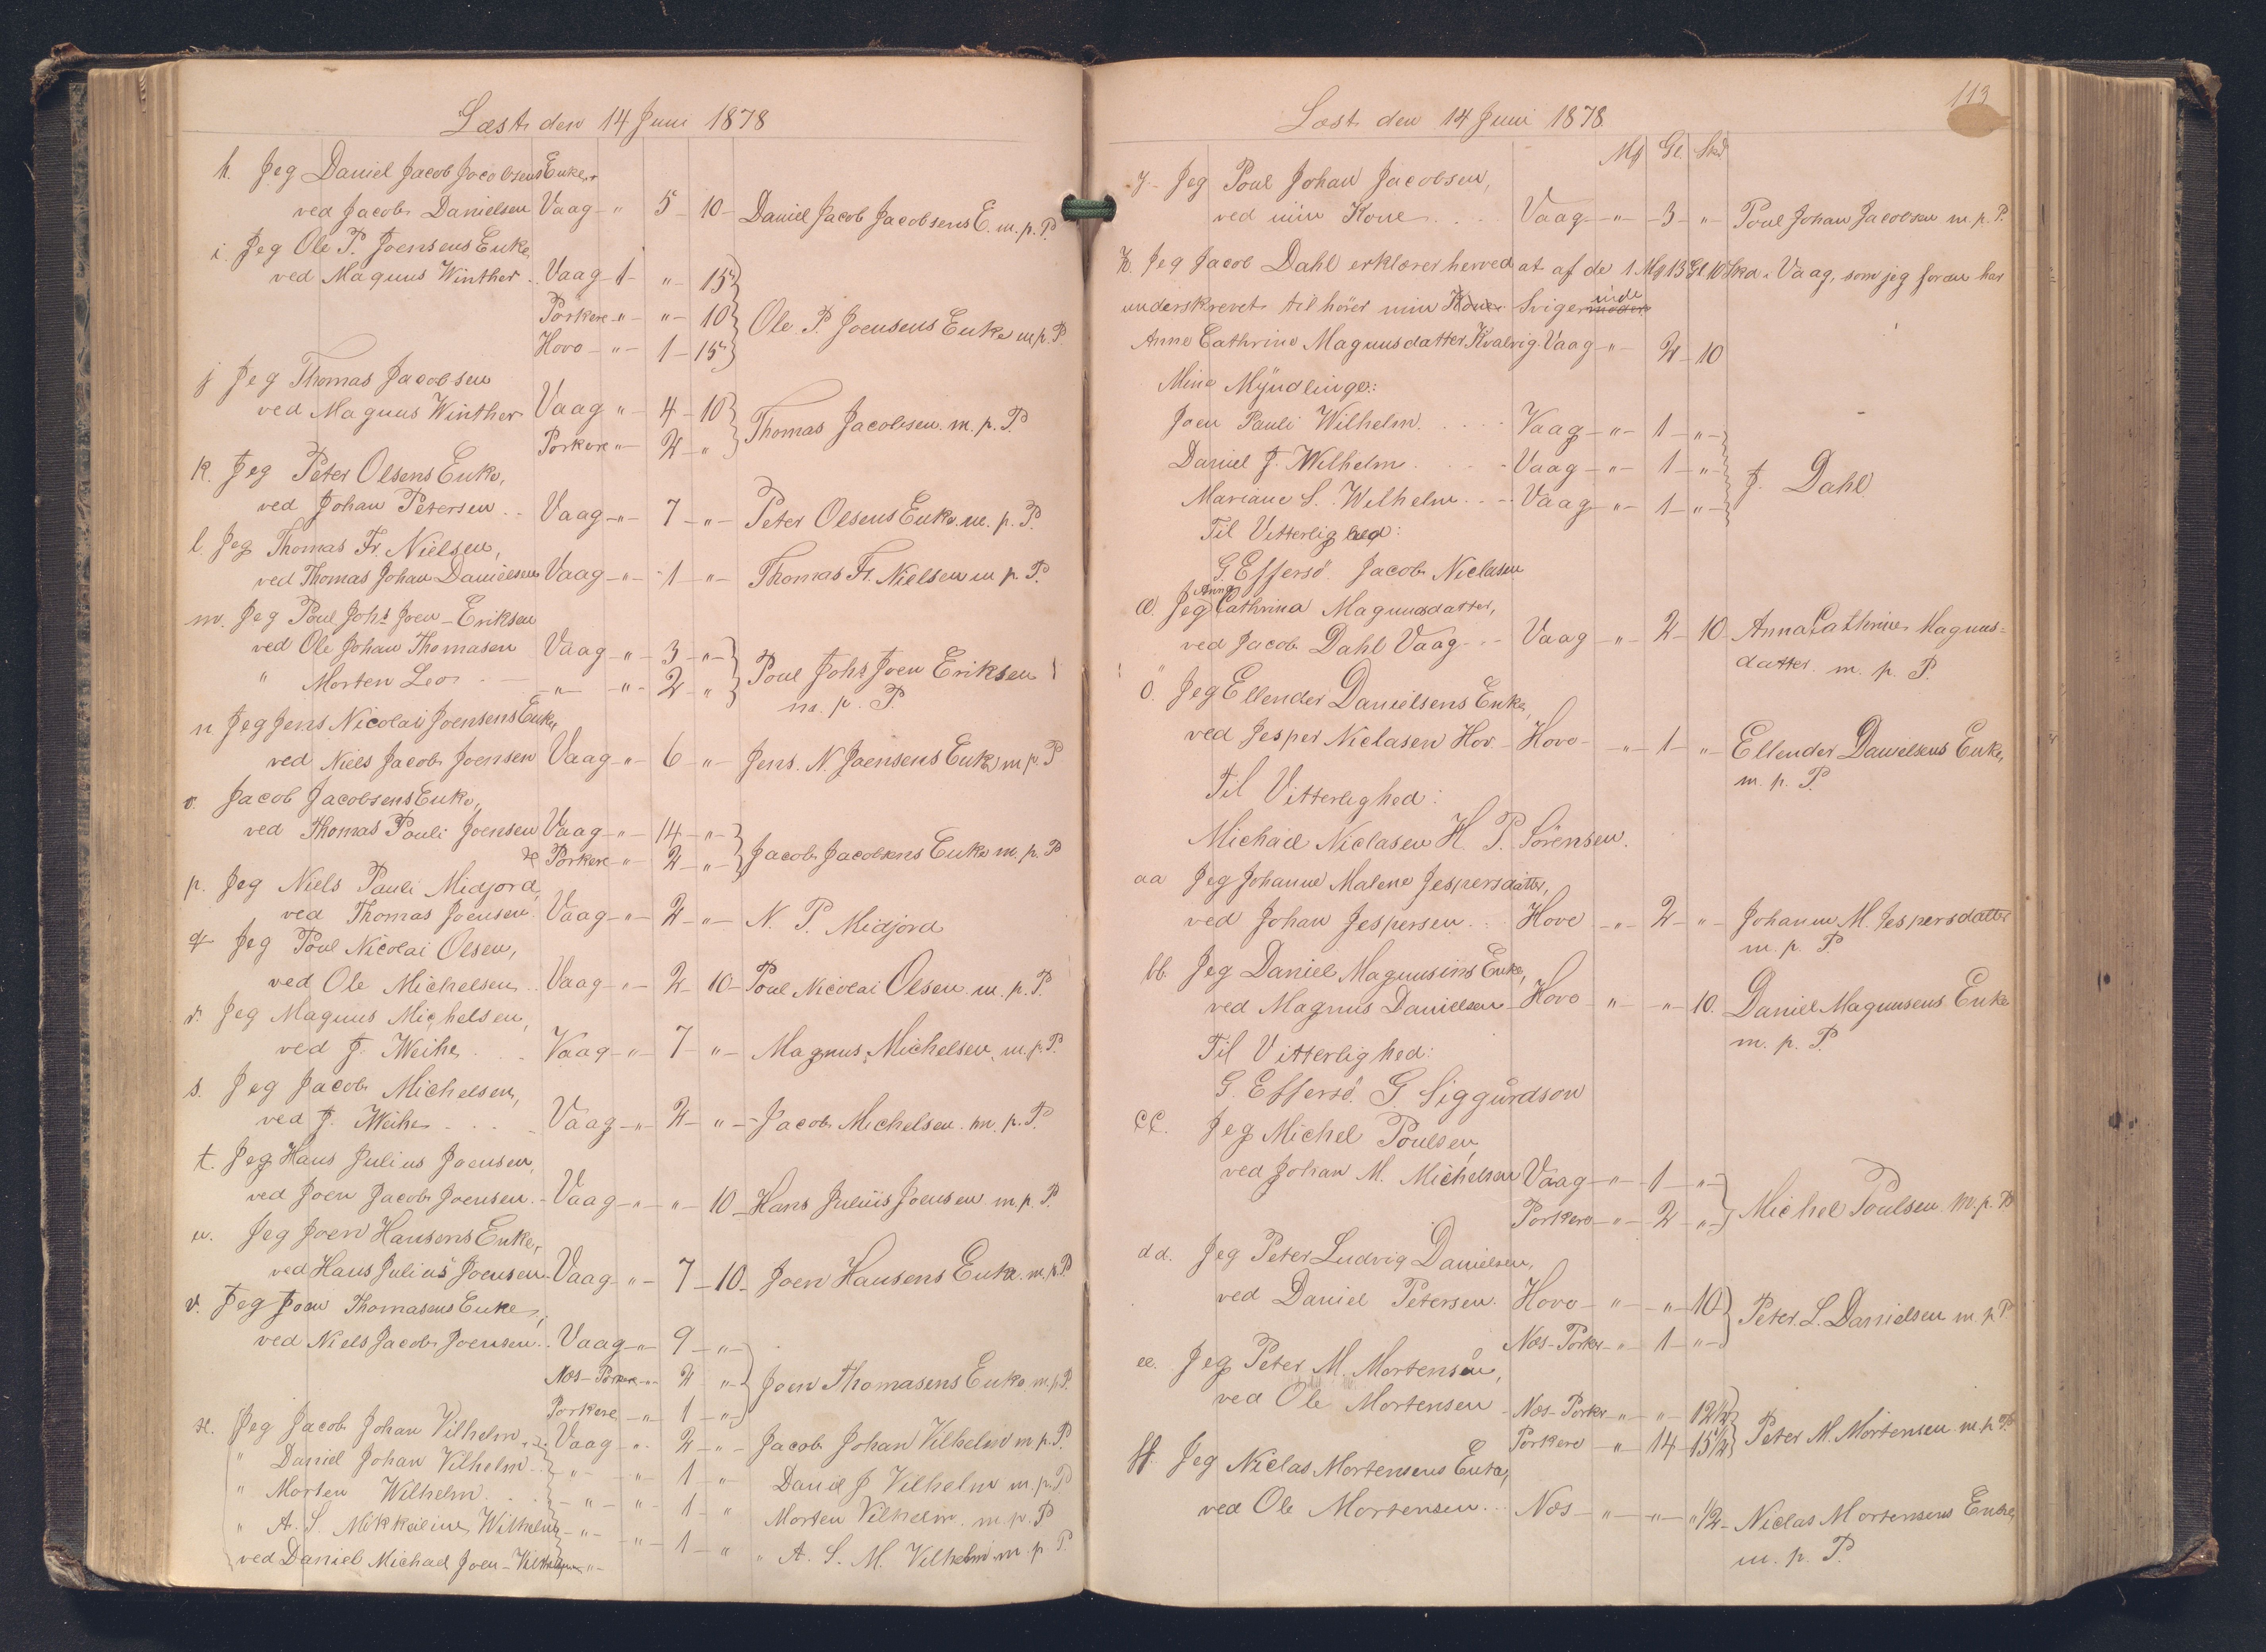 Læst den 14 Juni 1878
h. Jeg Daniel Jacob Jacobsens Enke,
ved Jacob Danielsen Vaag - " 5 - 10 - Daniel Jacob Jacobsens E. m. p. P.
i. Jeg Ole P. Joensens Enke,
ved Magnus Winther. Vaag - 1 - " - 15 }
Porkere - " - " - 10 } Ole P. Joensens Enke m. p. P.
Hovo - " - 1 - 15 }
j Jeg Thomas Jacobsen
ved Magnus Winther Vaag " - 4 - 10 } Thomas Jacobsen. m. p. P.
Porkere " - 2 - " }
k. Jeg Peter Olsens Enke,
ved Johan Petersen. - Vaag - " - 7 - " - Peter Olsens Enke. m. p. P.
l. Jeg Thomas Fr. Nielsen,
ved Thomas Johan Danielsen Vaag - " - 1 - " - Thomas Fr. Nielsen m. p. P.
m. Jeg Poul Johs Joen-Eriksen
ved Ole Johan Thomasen Vaag - " - 3 - " - } Poul Johs Joen Eriksen
" Morten Leo - - " - " - 2 - " } m. p. P.
n Jeg Jens Nicolai Joensens Enke,
ved Niels Jacob Joensen Vaag - " - 6 - " - Jens. N. Joensens Enke m. p. P
o. Jacob Jacobsens Enke,
ved Thomas Pauli Joensen Vaag - " - 14 - " - }
Porkere - " - 2 - " - } Jacob Jacobsens Enke m. p. P
p. Jeg Niels Pauli Midjord,
ved Thomas Joensen. Vaag - " - 2 - " - N. P. Midjord
q Jeg Poul Nicolai Olsen,
ved Ole Michelsen. . Vaag - " - 2 - 10 - Poul Nicolai Olsen m. p. P.
r. Jeg Magnus Michelsen,
ved J. Weihe . . . Vaag - " - 7 - " - Magnus Michelsen, m. p. P.
s. Jeg Jacob Michelsen,
ved J. Weihe . . . Vaag - " - 2 - " - Jacob Michelsen. m. p. P.
t. Jeg Hans Julius Joensen,
ved Joen Jacob Joensen. - Vaag - " - " - 10 - Hans Julius Joensen m. p. P.
u. Jeg Joen Hansens Enke,
ved Hans Julius Joensen - Vaag " - 7 - 10 - Joen Hansens Enke. m. p. P.
v. Jeg Joen Thomasens Enke,
ved Niels Jacob Joensen. . Vaag - " - 9 - " - }
Nos-Porkere - " - 2 " - } Joen Thomasens Enke m. p. P.
Porkere - " - 1 - " - }
x. Jeg Jacob Johan Vilhelm, . Vaag - " - 2 - " - Jacob Johan Vilhelm m. p. P.
" Daniel Johan Vilhelm - " - " - 1 - " - Daniel J Vilhelm m. p. P
" Morten Wilhelm. . . - " - " - 1 - " Morten Vilhelm. m. p. P
" A. S. Mikkeline Wilhelm - " - " - 1 - " " A. S. M. Vilhelm m. p. P.
ved Daniel Michael Joen-Vilhelm - " -
113
Læst den 14 Juni 1878.
Mk Gl. Skd
y - Jeg Poul Johan Jacobsen,
ved min Kone . . . . Vaag - " - 3 - " - Poul Johan Jacobsen m. p. P.
z. Jeg Jacob Dahl erklærer herved at af de 1 Mk 13 Gl 10 Skd i Vaag, som jeg foran har
underskrevet til hörer min Kone Svigermoder inde
Anne Cathrine Magnusdatter Kvalvig. Vaag - " - 2 - 10
Mine Myndlinge:
Joen Pauli Wilhelm. . . . . Vaag - " - 1 - " - }
Daniel J. Wilhelm . . . - Vaag - " - 1 - " - } J. Dahl
Mariane S. Wilhelm - - - Vaag - " - 1 - " - }
Til Vitterlighed:
G. Effersö. Jacob Niclasen
æ. Jeg Anna Cathrina Magnusdatter,
ved Jacob Dahl Vaag - - Vaag - " - 2 - 10 - Anna Cathrine Magnus=
datter. m. p. P.
ö. Jeg Ellender Danielsens Enke,
ved Jesper Niclasen Hov - Hovo - - " - 1 - " - Ellender Danielsens Enke,
m. p. P.
Til Vitterlighed:
Michael Niclasen H. P. Sörensen.
aa Jeg Johanne Malene Jespersdatter,
ved Johan Jespersen. . . Hove - " - 2 - " - Johanne M. Jespersdatter
m. p. P.
bb. Jeg Daniel Magnusens Enke,
ved Magnus Danielsen - Hovo - " - " - 10. Daniel Magnusens Enke
m. p. P.
Til Vitterlighed:
G. Effersö. G. Siggurdson
cc. Jeg Michel Poulsen,
ved Johan M. Michelsen Vaag - " - 1 - " - }
Porkere - " - 2 - " - } Michel Poulsen m. p. P
dd. Jeg Peter Ludvig Danielsen,
ved Daniel Petersen. Hovo - " - " - 10 } Peter. L. Danielsen m. p. P
Nos-Porker - " - 1 - " - }
ee. Jeg Peter M. Mortensen,
ved Ole Mortensen - Nos-Porker - " - " - 12 1/2 } Peter M. Mortensen m. p. P.
Porkere - " - 14 - 15 1/2 }
ff. Jeg Niclas Mortensens Enke,
ved Ole Mortensen. . . Nos - " - " - " 1/2 - Niclas Mortensens Enke,
m. p. P.